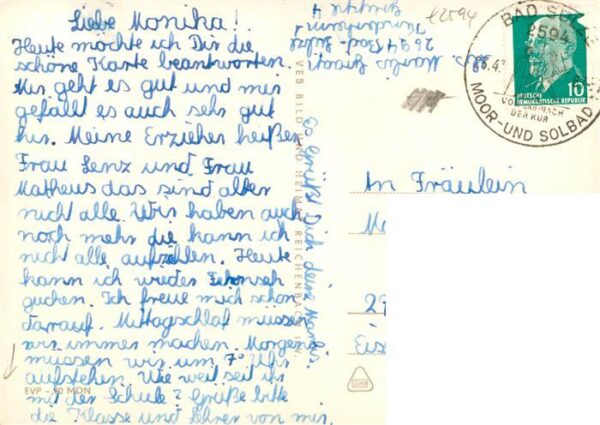 Liebe Monika!
Heute möchte ich Dir die
schöne Karte beantworten.
Mir geht es gut und mir
gefällt es auch sehr gut
hir. Meine Erzieher heißen
Frau Lenz und Frau
Matheus das sind aber
nicht alle. Wir haben auch
noch mehr die kann ich
nicht alle aufzählen. Heute
kann ich wieder Fernseh
gucken. Ich freue mich schon
darauf. Mittagschlaf müssen
wir immer machen. Morgens
müssen wir um 7⁰ Uhr
aufstehen. Wie weit seit ihr
mit der Schule? Grüße bitte
die Klasse und Lehrer von mir.
Es grüßt Dich deine
EVP MDN
VEB BILD UND HEIMAT REICHENBACH
Abs. Marlis
2594 Bad-Sülze
Kinderheim
4
t2594
BAD SÜLZE
2594
MOOR-UND SOLBAD
DER KUR
DEUTSCHE
DEMOKRATISCHE REPUBLIK
10
An Fräulein
29
Eis